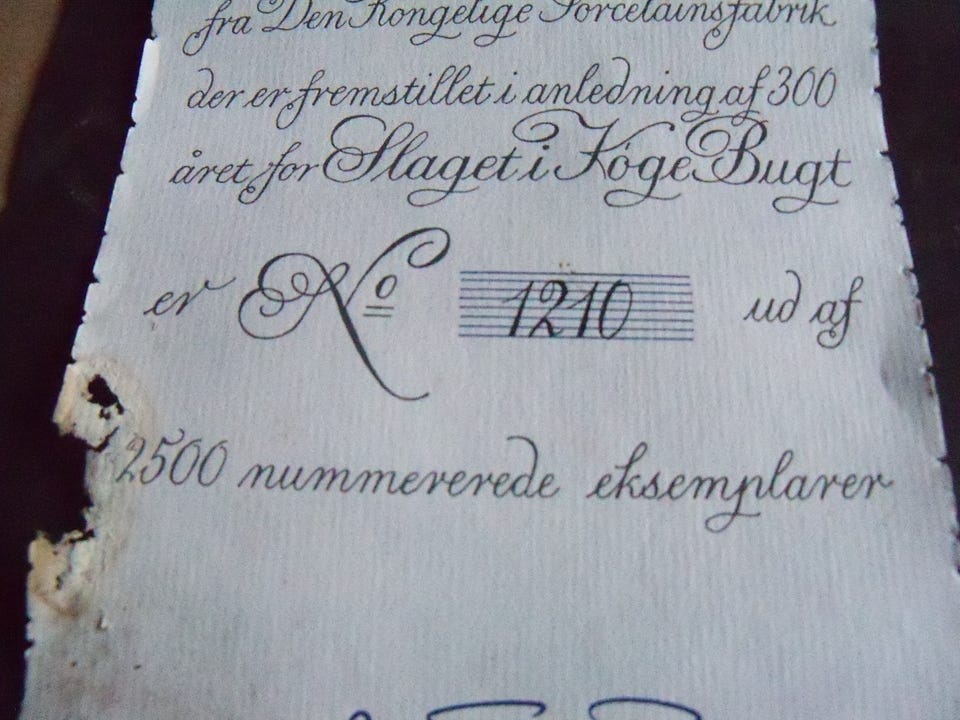 fra Den Kongelige Porcelainsfabrik
der er fremstillet i anledning af 300
året for Slaget i Køge Bugt
er No 1210 ud af
2500 nummererede eksemplarer